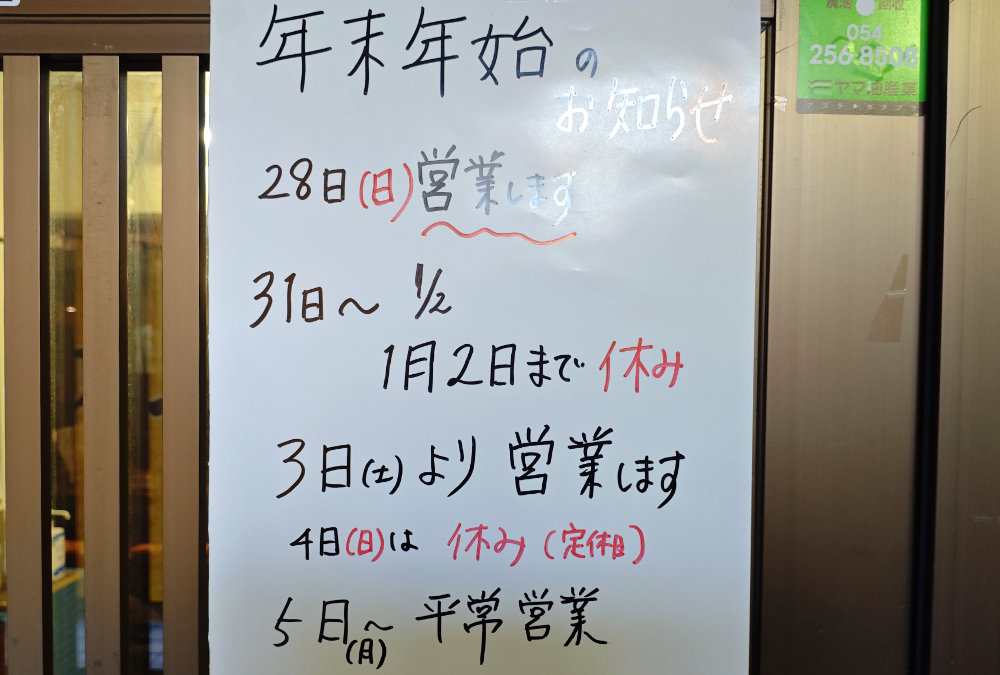 年末年始の
お知らせ
28日(日)営業します
31日〜 1/2
1月2日まで休み
3日(土)より営業します
4日(日)は 休み(定休日)
5日(月)〜 平常営業
054
256-8508
ヤマ油産業